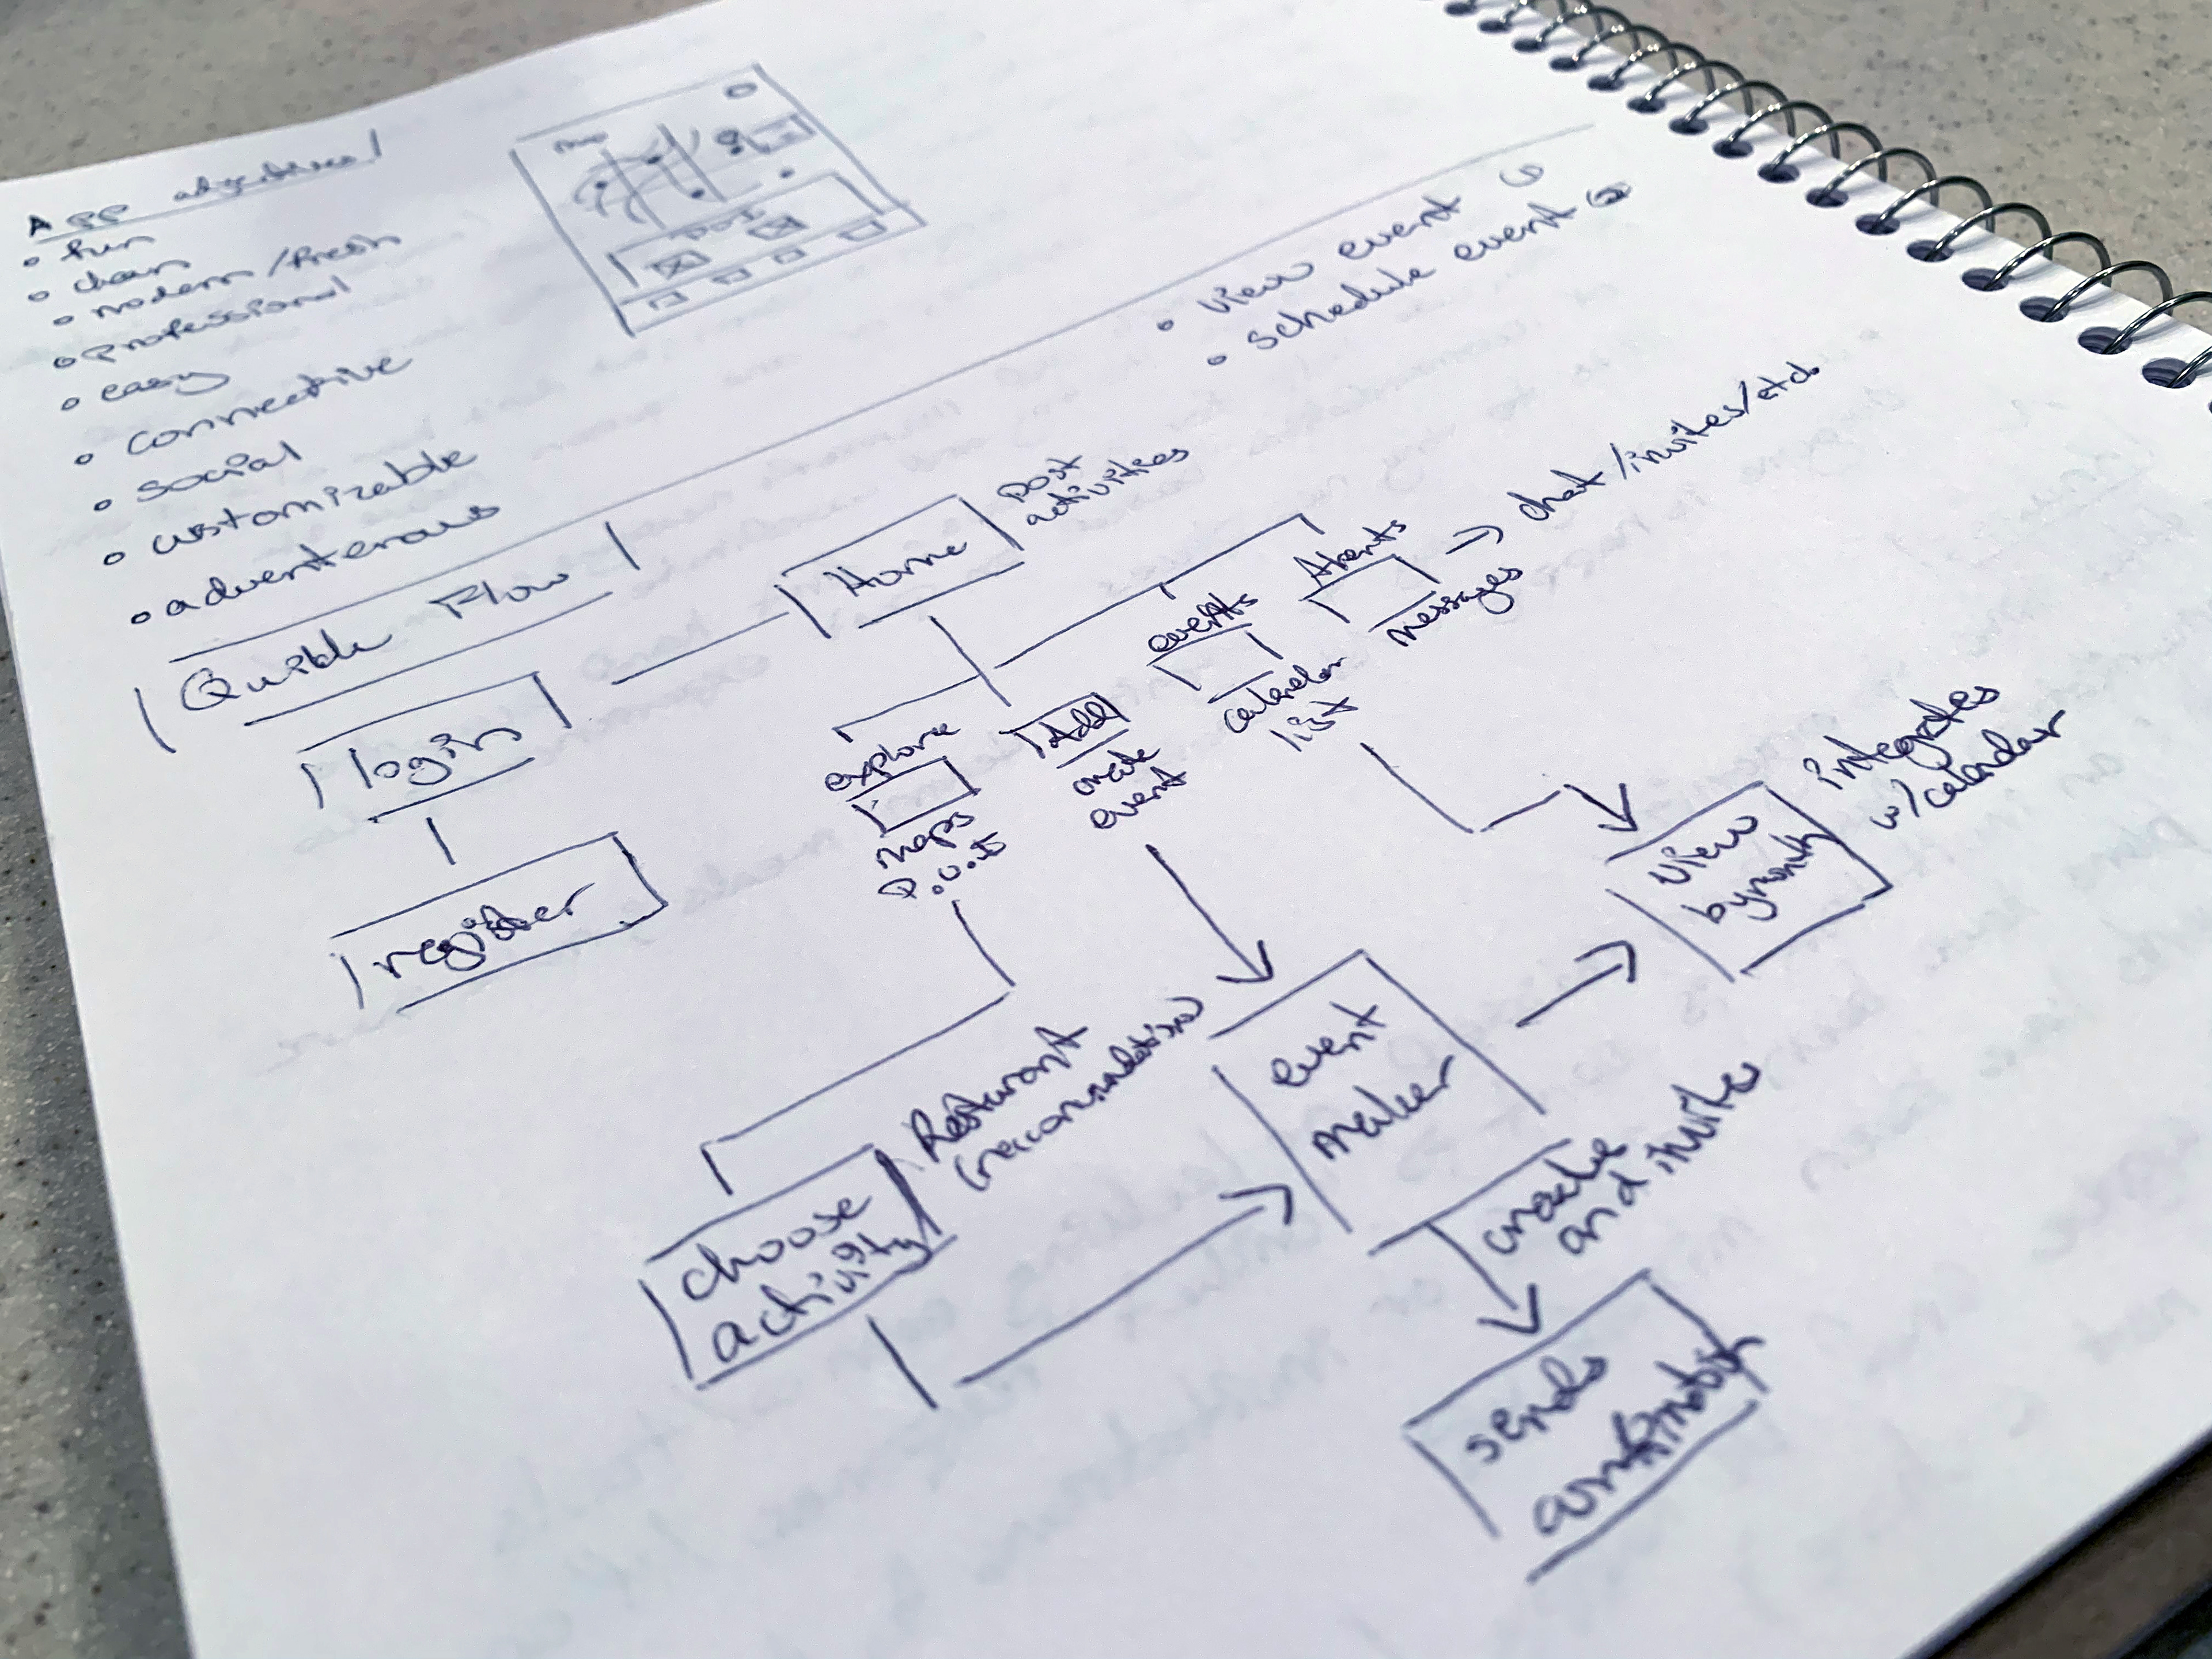 App
• fun
• clean
• modern/fresh
• professional
• easy
• connective
• social
• customizable
• adventerous
map
• view event
• schedule event
Quible Flow
login
register
Home
post
activities
explore
maps
Add
create
event
events
calendar
list
messages
→ chat/invites/etc.
view
by month
integrates
w/calendar
choose
activity
Resturant
event
maker
create
and invite
sends
confirmation